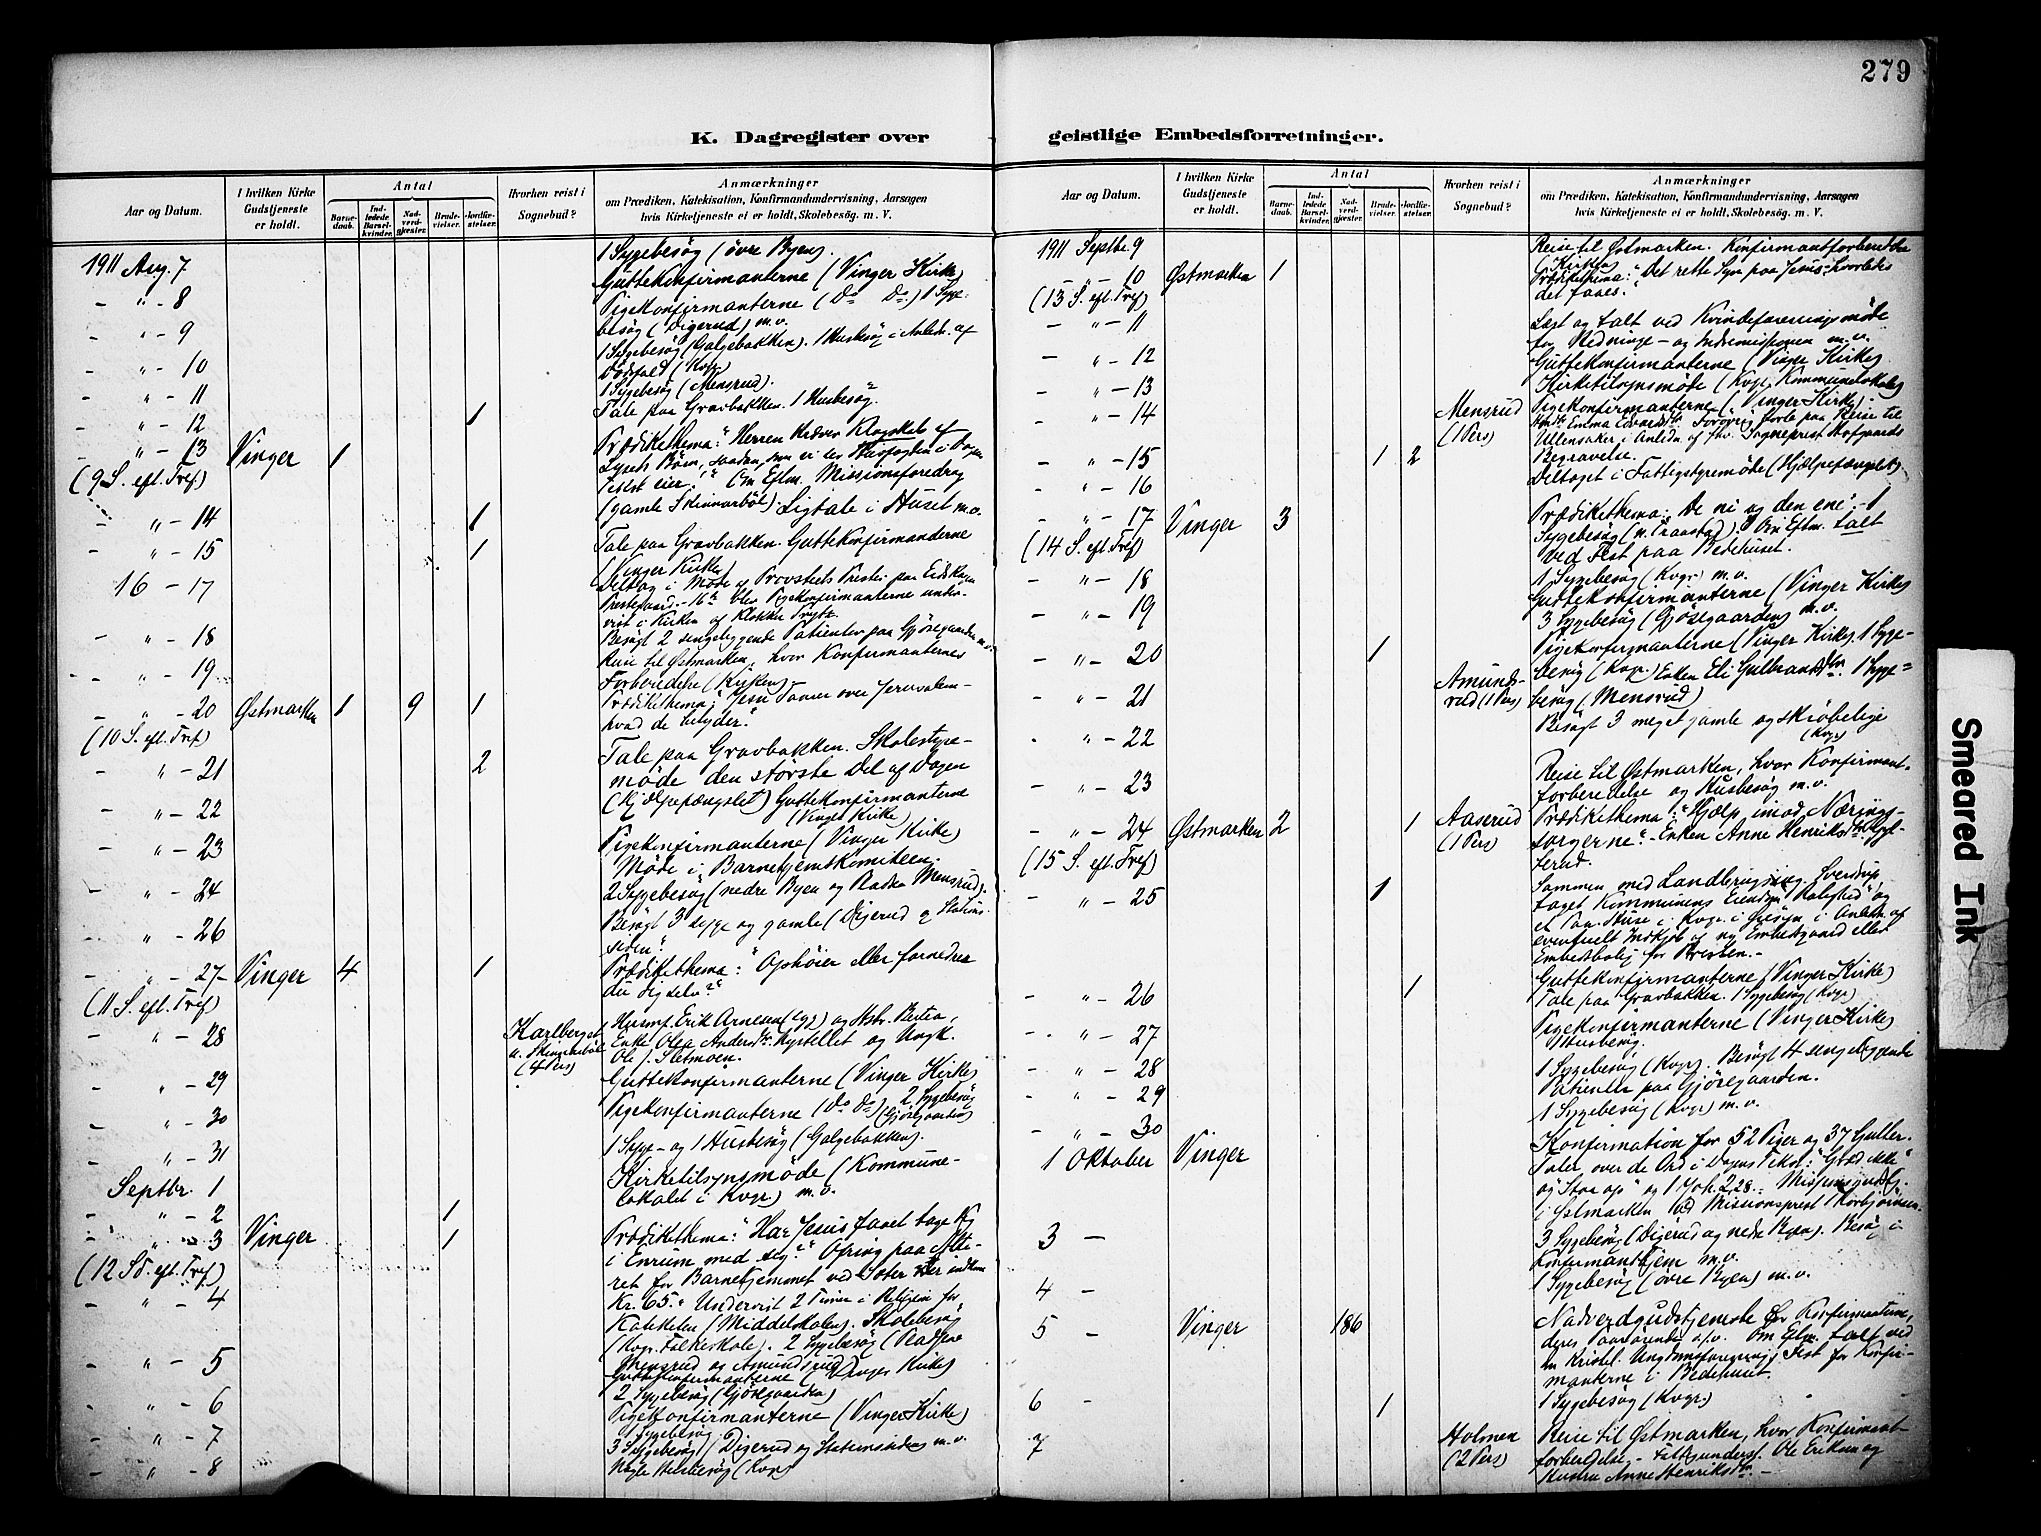 279
K. Dagregister over
geistlige Embedsforretninger.
Aar og Datum.
I hvilken Kirke
Gudstjeneste
er holdt.
Antal
Barne-
daab.
Ind-
ledede
Barsel-
kvinder.
Nad-
verd-
gjester.
Brude-
vielser.
Jordfæ-
stelser.
Hvorhen reist i
Sognebud?
Anmærkninger
om Prædiken, Katekisation, Konfirmandundervisning, Aarsagen
hvis Kirketjeneste ei er holdt, Skolebesøg. m. V.
1911 Aug. 7
1 Sygebesøg (øvre Byen).
- " - 8
Guttekonfirmanterne (Vinger Kirke)
- " - 9
Pigekonfirmanterne (Do Do) 1 Syge-
besøg (Digerud) m.v.
- " - 10
1 Sygebesøg (Galgebakken). 1 Husbesøg i Anledn. af
Dødsfald (Kvgr.)
- " - 11
1 Sygebesøg (Mensrud).
- " - 12 1
Tale paa Gravbakken. 1 Husbesøg.
- " - 13 Vinger 1
(9 S. eft. Tref)
Prædikethema: "Herren kræver Klogskab af
Lysets Børn, saadan som vi ser Husfogden i Dagens
Tekst eier." Om Eftm. Missionsforedrag
- " - 14 1
(gamle Skinnarbøl). Ligtale i Huset m.v.
- " - 15 1
Tale paa Gravbakken. Guttekonfirmanderne
(Vinger Kirke)
16 - 17
Deltog i Møde af Provstiets Prester paa Eidskogen
Prestegaard. - 16de blev Pigekonfirmanterne under-
vist i Kirken af Klokker
- " - 18
Besøgt 2 sengeliggende Patienter paa Gjøsegaarden m.v.
- " - 19
Reise til Østmarken, hvor Konfirmanternes
Forberedelse (Kirken).
- " - 20 Østmarken 1 9 1
(10 S. eft. Tref)
Prædikethema: "Jesu Taarer over Jerusalem -
hvad de betyder."
- " - 21 2
Tale paa Gravbakken. Skolestyre-
møde den største Del af Dagen
- " - 22
(Hjælpefængslet) Guttekonfirmanterne
(Vinger Kirke)
- " - 23
Pigekonfirmanterne (Vinger Kirke)
Møde i Barnehjemskomiteen.
- " - 24
2 Sygebesøg (nedre Byen og Badka Mensrud).
- " - 26
Besøgt 3 syge og gamle (Digerud og Stations-
siden."
- " - 27 - Vinger 4 1
(11 S. eft. Tref)
Prædikethema: "Ophøier eller fornedrer
du dig selv?"
- " - 28
Karlberget
(4 Pers)
Husmf. Erik Arnesen og Hstr. Berthe,
Enke Olea Andersdtr. Kystellet og Ungk.
Ole J. Sletmoen.
- " - 29
Guttekonfirmanterne (Vinger Kirke)
- " - 30
Pigekonfirmanterne (Do Do) 2 Sygebesøg
(Gjøsegaarden)
- " - 31
1 Syge- og 1 Husbesøg (Galgebakken).
Septbr. 1
Kirketilsynsmøde (Kommune-
lokalet i Kvgr.) m.v.
- " - 2 1
- " - 3 Vinger 1
(12 S. eft. Tref)
Prædikethema: "Har Jesus faaet tage dig
i Enrum med sig?" Ofring paa Alte-
ret for Barnehjemmet ved Soter der indkom
- " - 4
Kr. 65." Undervist 2 Timer i Religion for
Kateketen (Middelskolen). Skolebesøg
(Kvgr. Folkeskole). 2 Sygebesøg (Badka
Mensrud og Amundsrud)
- " - 5
Guttekonfirmanterne (Vinger Kirke)
2 Sygebesøg (Gjøsegaarden)
- " - 6
Pigekonfirmanterne (Vinger Kirke)
1 Sygebesøg
- " - 7
3 Sygebesøg (Digerud og Stationssiden) m.v.
- " - 8
Nogle Husbesøg (Kvgr)
Aar og Datum.
I hvilken Kirke
Gudstjeneste
er holdt.
Antal
Barne-
daab.
Ind-
ledede
Barsel-
kvinder.
Nad-
verd-
gjester.
Brude-
vielser.
Jordfæ-
stelser.
Hvorhen reist i
Sognebud?
Anmærkninger
om Prædiken, Katekisation, Konfirmandundervisning, Aarsagen
hvis Kirketjeneste ei er holdt, Skolebesøg. m. V.
1911 Septbr. 9
Reise til Østmarken. Konfirmantforberedelse
(Kirken)
- - 10 Østmarken 1
(13 S. eft. Tref)
Prædikethema: "Det rette Syn paa Jesus - hvorledes
det faaes."
- " - 11
Læst og talt ved Kvindeforeningsmøde
for Rednings- og Indremissionen m.v.
- " - 12
Guttekonfirmanterne (Vinger Kirke)
- " - 13
Kirketilsynsmøde (Kvgr. Kommunelokale)
- " - 14
Mensrud
(1 Pers)
Pigekonfirmanterne (Vinger Kirke).
Emma Edvardsdtr. Forøvrig borte paa Reise til
Ullensaker i Anledn. af fhv. Sogneprest Hofgaards
Begravelse.
- " - 15 1 2
- " - 16
Deltaget i Fattigstyremøde (Hjælpefængslet).
- " - 17 Vinger 3
(14 S. eft. Tref)
Prædikethema: "De ni og den ene". - 1
Sygebesøg (n. Traastad). Om Eftm. talt
ved Fest paa Bedehuset.
- " - 18
1 Sygebesøg (Kvgr.) m.v.
- " - 19
Guttekonfirmanterne (Vinger Kirke)
3 Sygebesøg (Gjøsegaarden) m.v.
- " - 20 1
Pigekonfirmanterne (Vinger Kirke). 1 Syge-
besøg (Kvgr.)
- " - 21
Amunds-
rud (1 Pers)
Enken Eli Gulbrandsdtr. 1 Syge-
besøg (Mensrud)
- " - 22
Besøgt 3 meget gamle og skrøbelige
(Kvgr)
- " - 23
Reise til Østmarken, hvor Konfirmant-
forberedelse og Husbesøg m.v.
- " - 24 Østmarken 2 1
(15 S. eft. Tref)
Aaserud
(1 Pers)
Prædikethema: "Hjælp imod Nærings-
sorgerne". - Enken Anne Henriksdtr.
- " - 25 1
Sammen med Landbrugsing. Sverdrup
taget Kommunens Eiendom "Rolighed" og
et Par Huse i Kvgr. i Øiesyn i Anledn. af
eventuelt Indkjøb af ny Embedsgaard eller
Embedsbolig for Presten. -
- " - 26 1
Guttekonfirmanterne (Vinger Kirke)
Tale paa Gravbakken. 1 Sygebesøg (Kvgr)
- " - 27
Pigekonfirmanterne (Vinger Kirke)
1 Husbesøg.
- " - 28
1 Sygebesøg (Kvgr). Besøgt 4 sengeliggende
Patienter paa Gjøsegaarden.
- " - 29
1 Sygebesøg (Kvgr) m.v.
- " - 30
1 Oktober Vinger
Konfirmation for 52 Piger og 37 Gutter.
Taler over de Ord i Dagens Tekst: "Græd ikke"
og "Staa op" og 1 Joh. 2,28. - Missionsgudstj.
i Østmarken ved Missionsprest Torbjørnsen.
3 -
3 Sygebesøg (Digerud og nedre Byen). Besøg i
Konfirmanthjem m.v.
4 -
1 Sygebesøg (øvre Byen) m.v.
5 - Vinger 186
Nadverdgudstjeneste for Konfirmanterne,
deres Paarørende o.s.v. Om Eftm. talt ved
en Kristel. Ungdomsforenings Fest for Konfir-
manterne i Bedehuset.
6 - 1
1 Sygebesøg (Kvgr.)
7
Holmen
(2 Pers)
Reise til Østmarken, hvor Konfirmant-
forberedelse. - Fattigunderst. Ole Eriksen og
Hustru Anne Henriksdtr. -
Smeared Ink